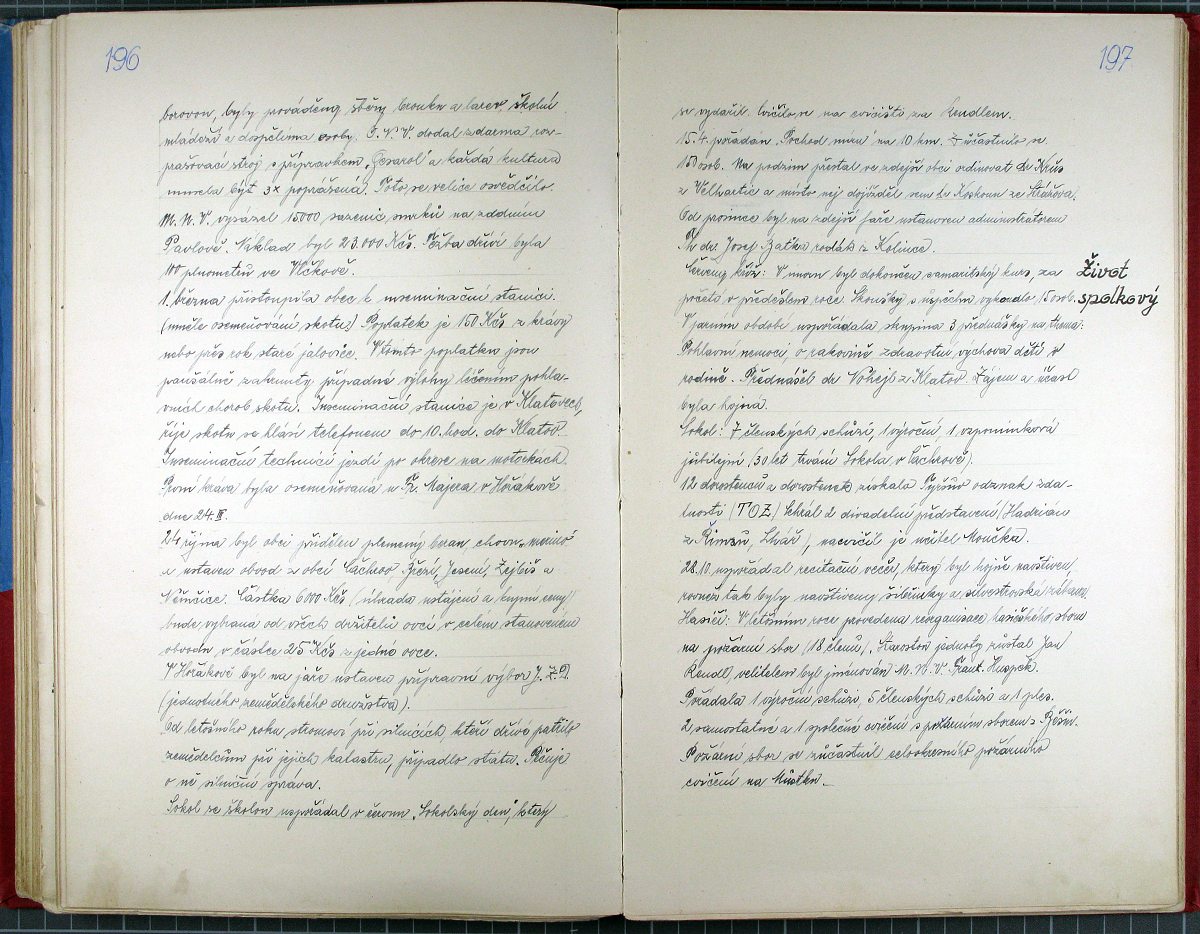 196
borovou, byly prováděny sběry brouka a larev školní
mládeží a dospělými osoby. O.N.V. dodal zdarma roz-
prašovací stroj s přípravkem "Gesarol" a každá kultura
musela být 3x poprášena. Toto se velice osvědčilo.
M.N.V. vysázel 15000 sazenic smrků na zdáním
Pavlově. Náklad byl 23.000 Kčs. Těžba dříví byla
100 plnometrů ve Vlčkově.
1. března přistoupila obec k inseminační stanici.
(umělé osemeňování skotu.) Poplatek je 150 Kčs z krávy
nebo přes rok staré jalovice. V tomto poplatku jsou
paušálně zahrnuty případné výlohy léčením pohla-
vních chorob skotu. Inseminační stanice je v Klatovech,
říje skotu se hlásí telefonem do 10. hod. do Klatov.
Inseminační technici jezdí po okrese na motorkách.
První kráva byla osemeňovaná u Fr. Majera v Hořákově
dne 24.III.
24 října byl obci přidělen plemenný beran, chovu "merino"
a ustaven obvod z obcí Čachrov Březí, Jesení, Žejbiš a
Němčice. Částka 6000 Kčs (úhrada ustájení a kupní ceny)
bude vybrána od všech držitelů ovcí v celém stanoveném
obvodu v částce 25 Kčs z jedné ovce.
V Hořákově byl na jaře ustaven přípravní výbor J.Z.D.
(jednotného zemědělského družstva).
Od letošního roku stromoví při silnicích, kteří dříve patřilo
zemědělcům při jejich katastru, připadlo státu. Pečuje
o ně silniční správa.
Sokol se školou uspořádal v červnu "Sokolský den", který
197
se vydařil. Cvičilo se na cvičišti za Rendlem.
15.4. pořádán "Pochod míru" na 10 km. účastnilo se
150 osob. Na podzim přestal ve zdejší obci ordinovat dr Krůs
z Velhartic a místo něj dojížděl sem dr Koskoun ze Strážova.
Od prosince byl na zdejší faře ustanoven administrátorem
Th dr. Josef Bačka rodák z Kolince.
Život
spolkový
Červený kříž: V únoru byl dokončen samaritský kurs, za
početí v předešlém roce. Zkoušky s úspěchem vykonalo 15 osob.
V jarním období uspořádala skupina 3 přednášky na thema:
Pohlavní nemoci, o rakovině zdravotní výchova dětí v
rodině. Přednášel dr Vohejl z Klatov. Zájem a účast
byla hojná.
Sokol: 7 členských schůzí, 1 výroční, 1 vzpomínková
jubilejní (30 let trvání Sokola v Čachrově).
12 dorostenců a dorostenek získala Tyršův odznak zda-
tnosti (TOZ.) Sehrál 2 divadelní představení (Hadrián
z Římsů, Lhář), nacvičil je učitel Moučka.
28.10. uspořádal recitační večer, který byl hojně navštíven,
rovněž tak byly navštíveny šibřinky a silvestrovská zábava.
Hasiči: V letošním roce provedena reorganisace hasičského sboru
na požární sbor (18 členů). Starostou jednoty zůstal Jan
Rendl velitelem byl jmenován M.N.V. Frant. Huspek.
Pořádala 1 výroční schůzi, 5 členských schůzí a 1 ples.
2 samostatné a 1 společné cvičení s požárním sborem z Běšin.
Požární sbor se zúčastnil celookresního požárního
cvičení na Můstku.